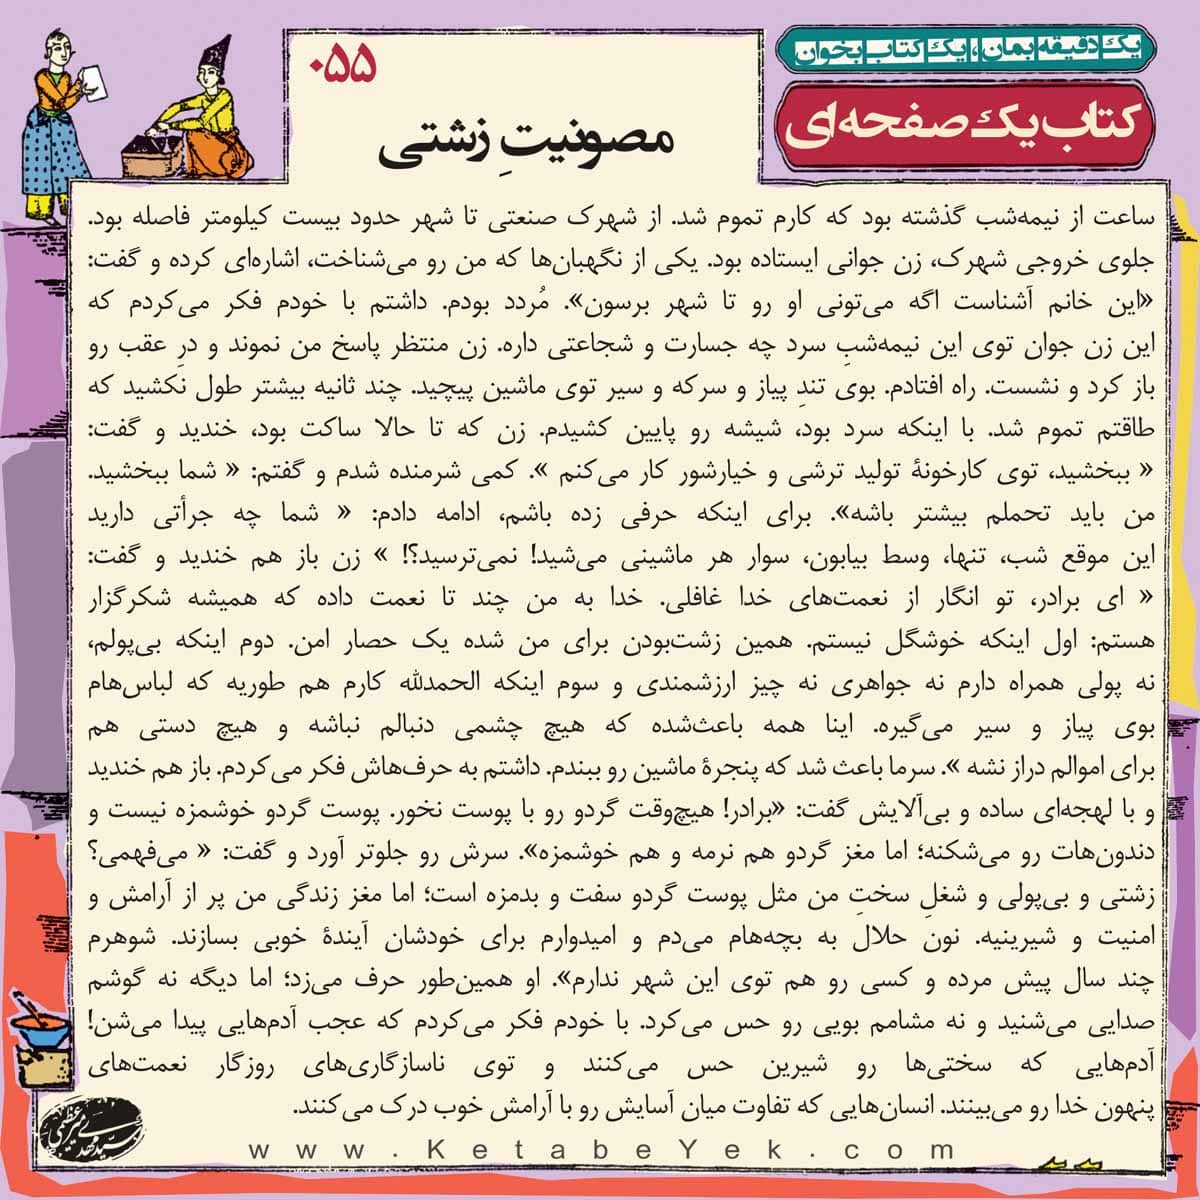 یک دقیقه بمان، یک کتاب بخوان
کتاب یک صفحه‌ای
۰۵۵
مصونیتِ زشتی
ساعت از نیمه‌شب گذشته بود که کارم تموم شد. از شهرک صنعتی تا شهر حدود بیست کیلومتر فاصله بود.
جلوی خروجی شهرک، زن جوانی ایستاده بود. یکی از نگهبان‌ها که من رو می‌شناخت، اشاره‌ای کرده و گفت:
«این خانم آشناست اگه می‌تونی او رو تا شهر برسون». مُردد بودم. داشتم با خودم فکر می‌کردم که
این زن جوان توی این نیمه‌شبِ سرد چه جسارت و شجاعتی داره. زن منتظر پاسخ من نموند و درِ عقب رو
باز کرد و نشست. راه افتادم. بوی تندِ پیاز و سرکه و سیر توی ماشین پیچید. چند ثانیه بیشتر طول نکشید که
طاقتم تموم شد. با اینکه سرد بود، شیشه رو پایین کشیدم. زن که تا حالا ساکت بود، خندید و گفت:
« ببخشید، توی کارخونهٔ تولید ترشی و خیارشور کار می‌کنم ». کمی شرمنده شدم و گفتم: « شما ببخشید.
من باید تحملم بیشتر باشه». برای اینکه حرفی زده باشم، ادامه دادم: « شما چه جرأتی دارید
این موقع شب، تنها، وسط بیابون، سوار هر ماشینی می‌شید! نمی‌ترسید؟! » زن باز هم خندید و گفت:
« ای برادر، تو انگار از نعمت‌های خدا غافلی. خدا به من چند تا نعمت داده که همیشه شکرگزار
هستم: اول اینکه خوشگل نیستم. همین زشت‌بودن برای من شده یک حصار امن. دوم اینکه بی‌پولم،
نه پولی همراه دارم نه جواهری نه چیز ارزشمندی و سوم اینکه الحمدلله کارم هم طوریه که لباس‌هام
بوی پیاز و سیر می‌گیره. اینا همه باعث‌شده که هیچ چشمی دنبالم نباشه و هیچ دستی هم
برای اموالم دراز نشه ». سرما باعث شد که پنجرهٔ ماشین رو ببندم. داشتم به حرف‌هاش فکر می‌کردم. باز هم خندید
و با لهجه‌ای ساده و بی‌آلایش گفت: «برادر! هیچ‌وقت گردو رو با پوست نخور. پوست گردو خوشمزه نیست و
دندون‌هات رو می‌شکنه؛ اما مغز گردو هم نرمه و هم خوشمزه». سرش رو جلوتر آورد و گفت: « می‌فهمی؟
زشتی و بی‌پولی و شغلِ سختِ من مثل پوست گردو سفت و بدمزه است؛ اما مغز زندگی من پر از آرامش و
امنیت و شیرینیه. نون حلال به بچه‌هام می‌دم و امیدوارم برای خودشان آیندهٔ خوبی بسازند. شوهرم
چند سال پیش مرده و کسی رو هم توی این شهر ندارم». او همین‌طور حرف می‌زد؛ اما دیگه نه گوشم
صدایی می‌شنید و نه مشامم بویی رو حس می‌کرد. با خودم فکر می‌کردم که عجب آدم‌هایی پیدا می‌شن!
آدم‌هایی که سختی‌ها رو شیرین حس می‌کنند و توی ناسازگاری‌های روزگار نعمت‌های
پنهون خدا رو می‌بینند. انسان‌هایی که تفاوت میان آسایش رو با آرامش خوب درک می‌کنند.
www.KetabeYek.com